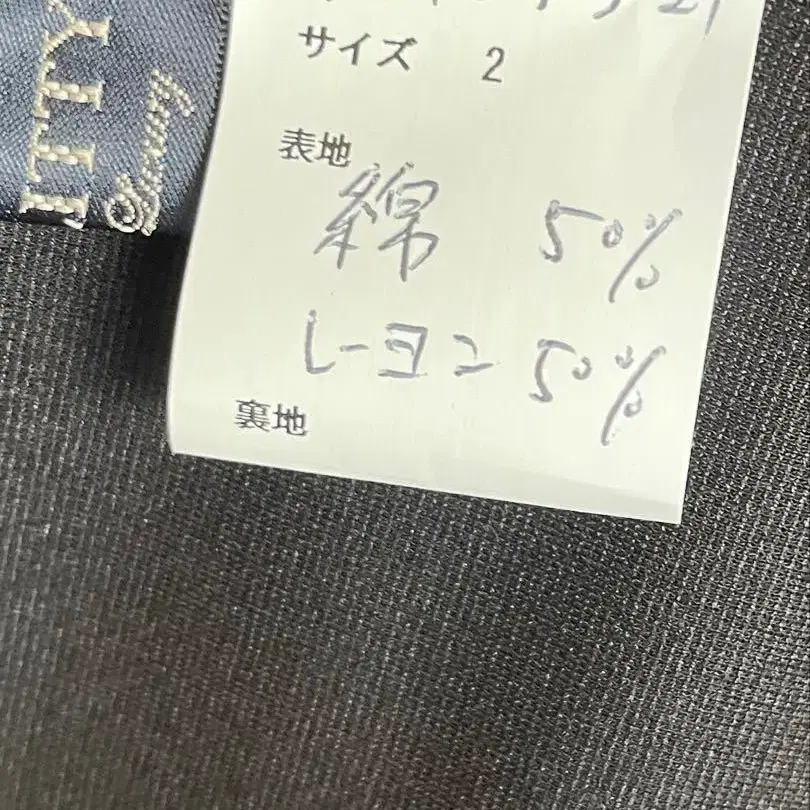 サイズ 2
表地
綿 50%
レーヨン 50%
裏地
LITY